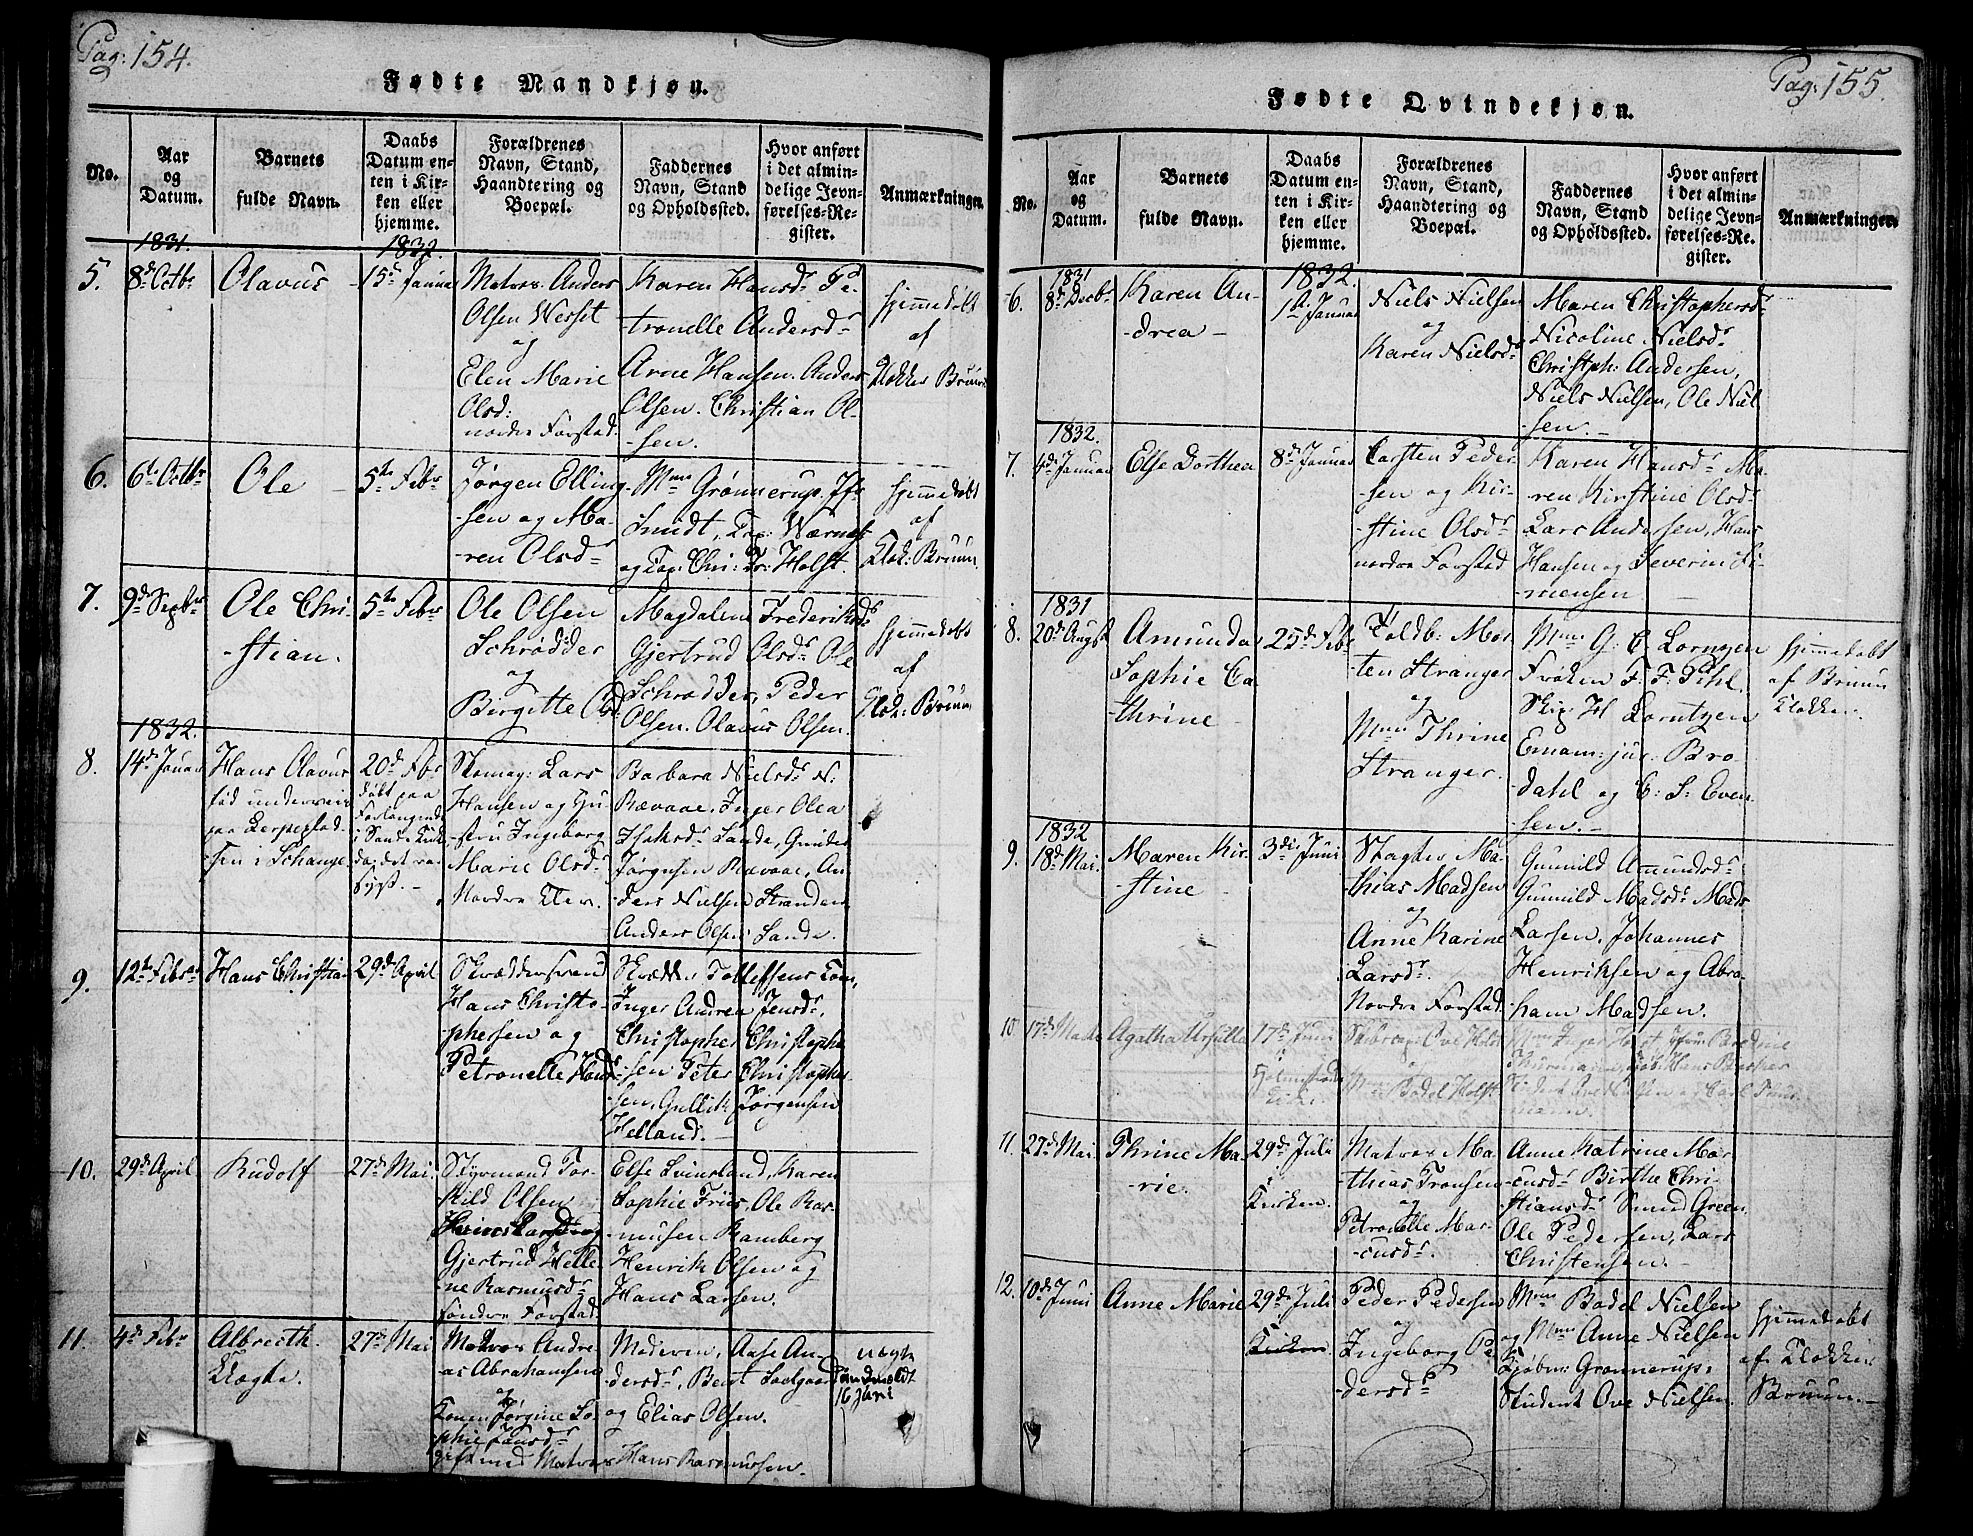 Pag: 154.
Fødte Mandkjøn.
No.
Aar
og
Datum.
Barnets
fulde Navn.
Daabs
Datum en-
ten i Kir-
ken eller
hjemme.
Forældrenes
Navn, Stand,
Haandtering og
Boepæl.
Faddernes
Navn, Stand
og Opholdssted.
Hvor anført
i det almin-
delige Jevn-
førelses-Re-
gister.
Anmærkninger.
1831.
1832.
5.
8d Octbr
Olavus
15d Januar
Matros Anders
Olsen Wesset
og
Elen Marie
Olsd:
nordre Forstad.
Karen Hansdr Pe-
-tronelle Andersdr
Arne Hansen. Anders
Olsen. Christian Ol-
-sen.
hjemmedøbt
af
Klokker Bruun
6.
6te Octbr
Ole
5te Febr
Jørgen Elling-
-sen og Ma-
-ren Olsdr
Mme Grønnerup. Jfr
Smidt,
og Cap: Chr: Fr: Holst.
hjemmedøbt
af
Klok: Bruun.
7.
9d Septbr
Ole Chri-
-stian.
5te Febr
Ole Olsen
Schrødder
og
Birgitte Olsd
Magdalene Frederiksdr
Gjertrud Olsdr Ole
Schrødder, Peder
Olsen. Olavus Olsen.
hjemmedøbt
af
Klok: Bruun
1832.
8.
14d Januar
Hans Olavus
fød underveis
paa
20d Febr
døbt paa
Forlangende
i Sande Kirke
da det var
sygt.-
Skomag: Lars
Hansen og Hu-
-stru Ingeborg
Marie Olsdr
Nordre
Barbara Nielsdr N:
Revaae, Inger Olea
Isaksdr Sande, Gunder
Jørgensen Revaae, An-
-ders Nielsen Stranden
Anders Olsen Sande.
9.
12te Febr
Hans Christian
29d April
Skrædersvend
Hans Christo-
-phersen og
Petronelle Hans
Skrædder Tollefsens Kone,
Inger Andrea Jensdr,
Christopher Christopher-
-sen Peter Christopher-
-sen, Gullik Jørgensen
Helland.-
10.
29d April
Rudolf
27d Mai.
Styrmand Ter-
-kild Olsen
Gjertrud Helle-
-ne Rasmusdr
søndre Forstad.
Else Svinesland, Karen
Sophie Friis, Ole Ras-
-musen Ramberg
Henrik Olsen og
Hans Larsen.
11.
4d Febr
Albrecth
27d Mai
Matros Andre-
-as Abrahamsen
og
Konen Jørgine So-
-phie
gift med Matros
Madeven, Aase An-
dersdr, Bent
og Elias Olsen.
Hans Rasmussen.
uægte
16 Juni
Pag: 155.
Fødte Qvindekjøn.
No.
Aar
og
Datum.
Barnets
fulde Navn.
Daabs
Datum en-
ten i Kir-
ken eller
hjemme.
Forældrenes
Navn, Stand,
Haandtering og
Boepæl.
Faddernes
Navn, Stand
og Opholdssted.
Hvor anført
i det almin-
delige Jevn-
førelses-Re-
gister.
Anmærkninger.
1831
1832.
6.
8d Decbr
Karen An-
-drea -
1d Januar
Niels Nielsen
og
Karen Nielsdr
Maren Christophersdr
Nicoline Nielsdr
Christph: Andersen,
Niels Nielsen, Ole Niel-
-sen.-
1832.
7.
4d Januar
Else Dorthea
8d Januar
Carsten Peder-
-sen og Kir-
-stine Olsdr
nordre Forstad
Karen Hansdr Ma-
-ren Kirstine Olsdr
Lars Andersen, Hans
Hansen og Severin Si-
-mensen
1831
8.
20d Augst
Amunda
Sophie Ca-
-thrine -
25d Febr
Toldb: Mor-
-ten Stranger
og
Mme Thrine
Stranger.
Mme G: C. Lorntzen
Frøken F. F. Pihl.
Skip. H Lorntzen
Emam: jur. Bro-
dahl og C: S: Even-
-sen.-
hjemmedøbt
af Bruun
Klokker.
1832
9.
18d Mai.
Maren Kir-
-stine -
3die Juni
Slagter Ma-
-thias Madsen
og
Anne Karine
Larsdr.
Nordre Forstad
Gunnild Amundsdr
Gunnild Madsdr Mads
Larsen, Johannes
Henriksen og Abra-
ham Madsen.
10
17d
Agatha Ursulla
17d Juni
Holmestrands
Kirke
og
Mme Bodel Holst
Mme Inger Holst
11.
27d Mai.
Thrine Ma-
-rie.
29d Juli
Kirken.
Matros Ma-
-thias Tronsen
og
Petronelle Mar-
-cusdr.
Anne Katrine Mar-
-cusdr Birthe Chri-
-stiansdr Smud Green
Ole Pedersen, Lars
Christensen.-
12.
10d Juni
Anne Marie
29d Juli
Kirken
Peder Pedersen
og
Ingeborg Pe-
-dersdr
Mme Bodel Nielsen
og Mme Anne Nielsen
Kjøbm: Grønnerup,
Student Ove Nielsen.
hjemmedøbt
af Klokker
Bruun.-